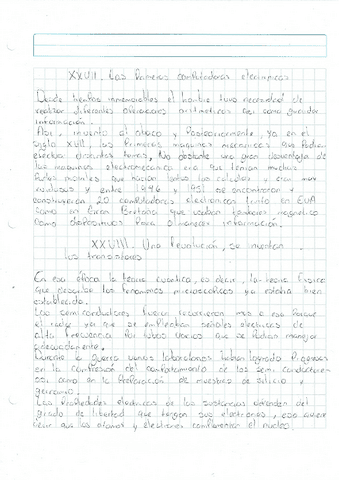 XXVII. Las Primeras computadoras electronicas
Desde tiempos inmemorables el hombre tuvo necesidad de
realizar diferentes operaciones aritmeticas asi como guardar
información.
Asi, invento el abaco y Posteriormente, ya en el
siglo XVII, las Primeras maquinas mecanicas que Podian
efectuar distintas tareas, No obstante una gran desventaja de
las maquinas electromecanica era que tenian muchas
Partes moviles que hacian lentos los calculos y eran muy
ruidosas y entre 1946 y 1951 se encontraron y
construyeron 20 computadoras electronicas tanto en EUA
como en Gran Bretaña que usaban tambores magnetico
como dispositivos Para almacenar información.
XXVIII. Una Revolución, se inventan
los transistores
En esa época la teoria cuantica, es decir, la teoria fisica
que describe los fenomenos microscopicos ya estaba bien
establecida.
Los semiconductores fueron recurrieron mas a eso Porque
el radar ya que se empleaban señales electricas de
alta frecuencia Por tubos vacios que se Podian manejar
adecuadamente.
Durante la guerra varios laboratorios habian logrado Progresos
en la comPresión del comPortamiento de los semi-conductores
asi como en la PreParación de muestras de silicio y
germanio.
Las ProPiedades electricas de las sustancias dePenden del
grado de libertad que tengan sus electrones, eso quiere
decir que los atomos y electrones complementan el nucleo